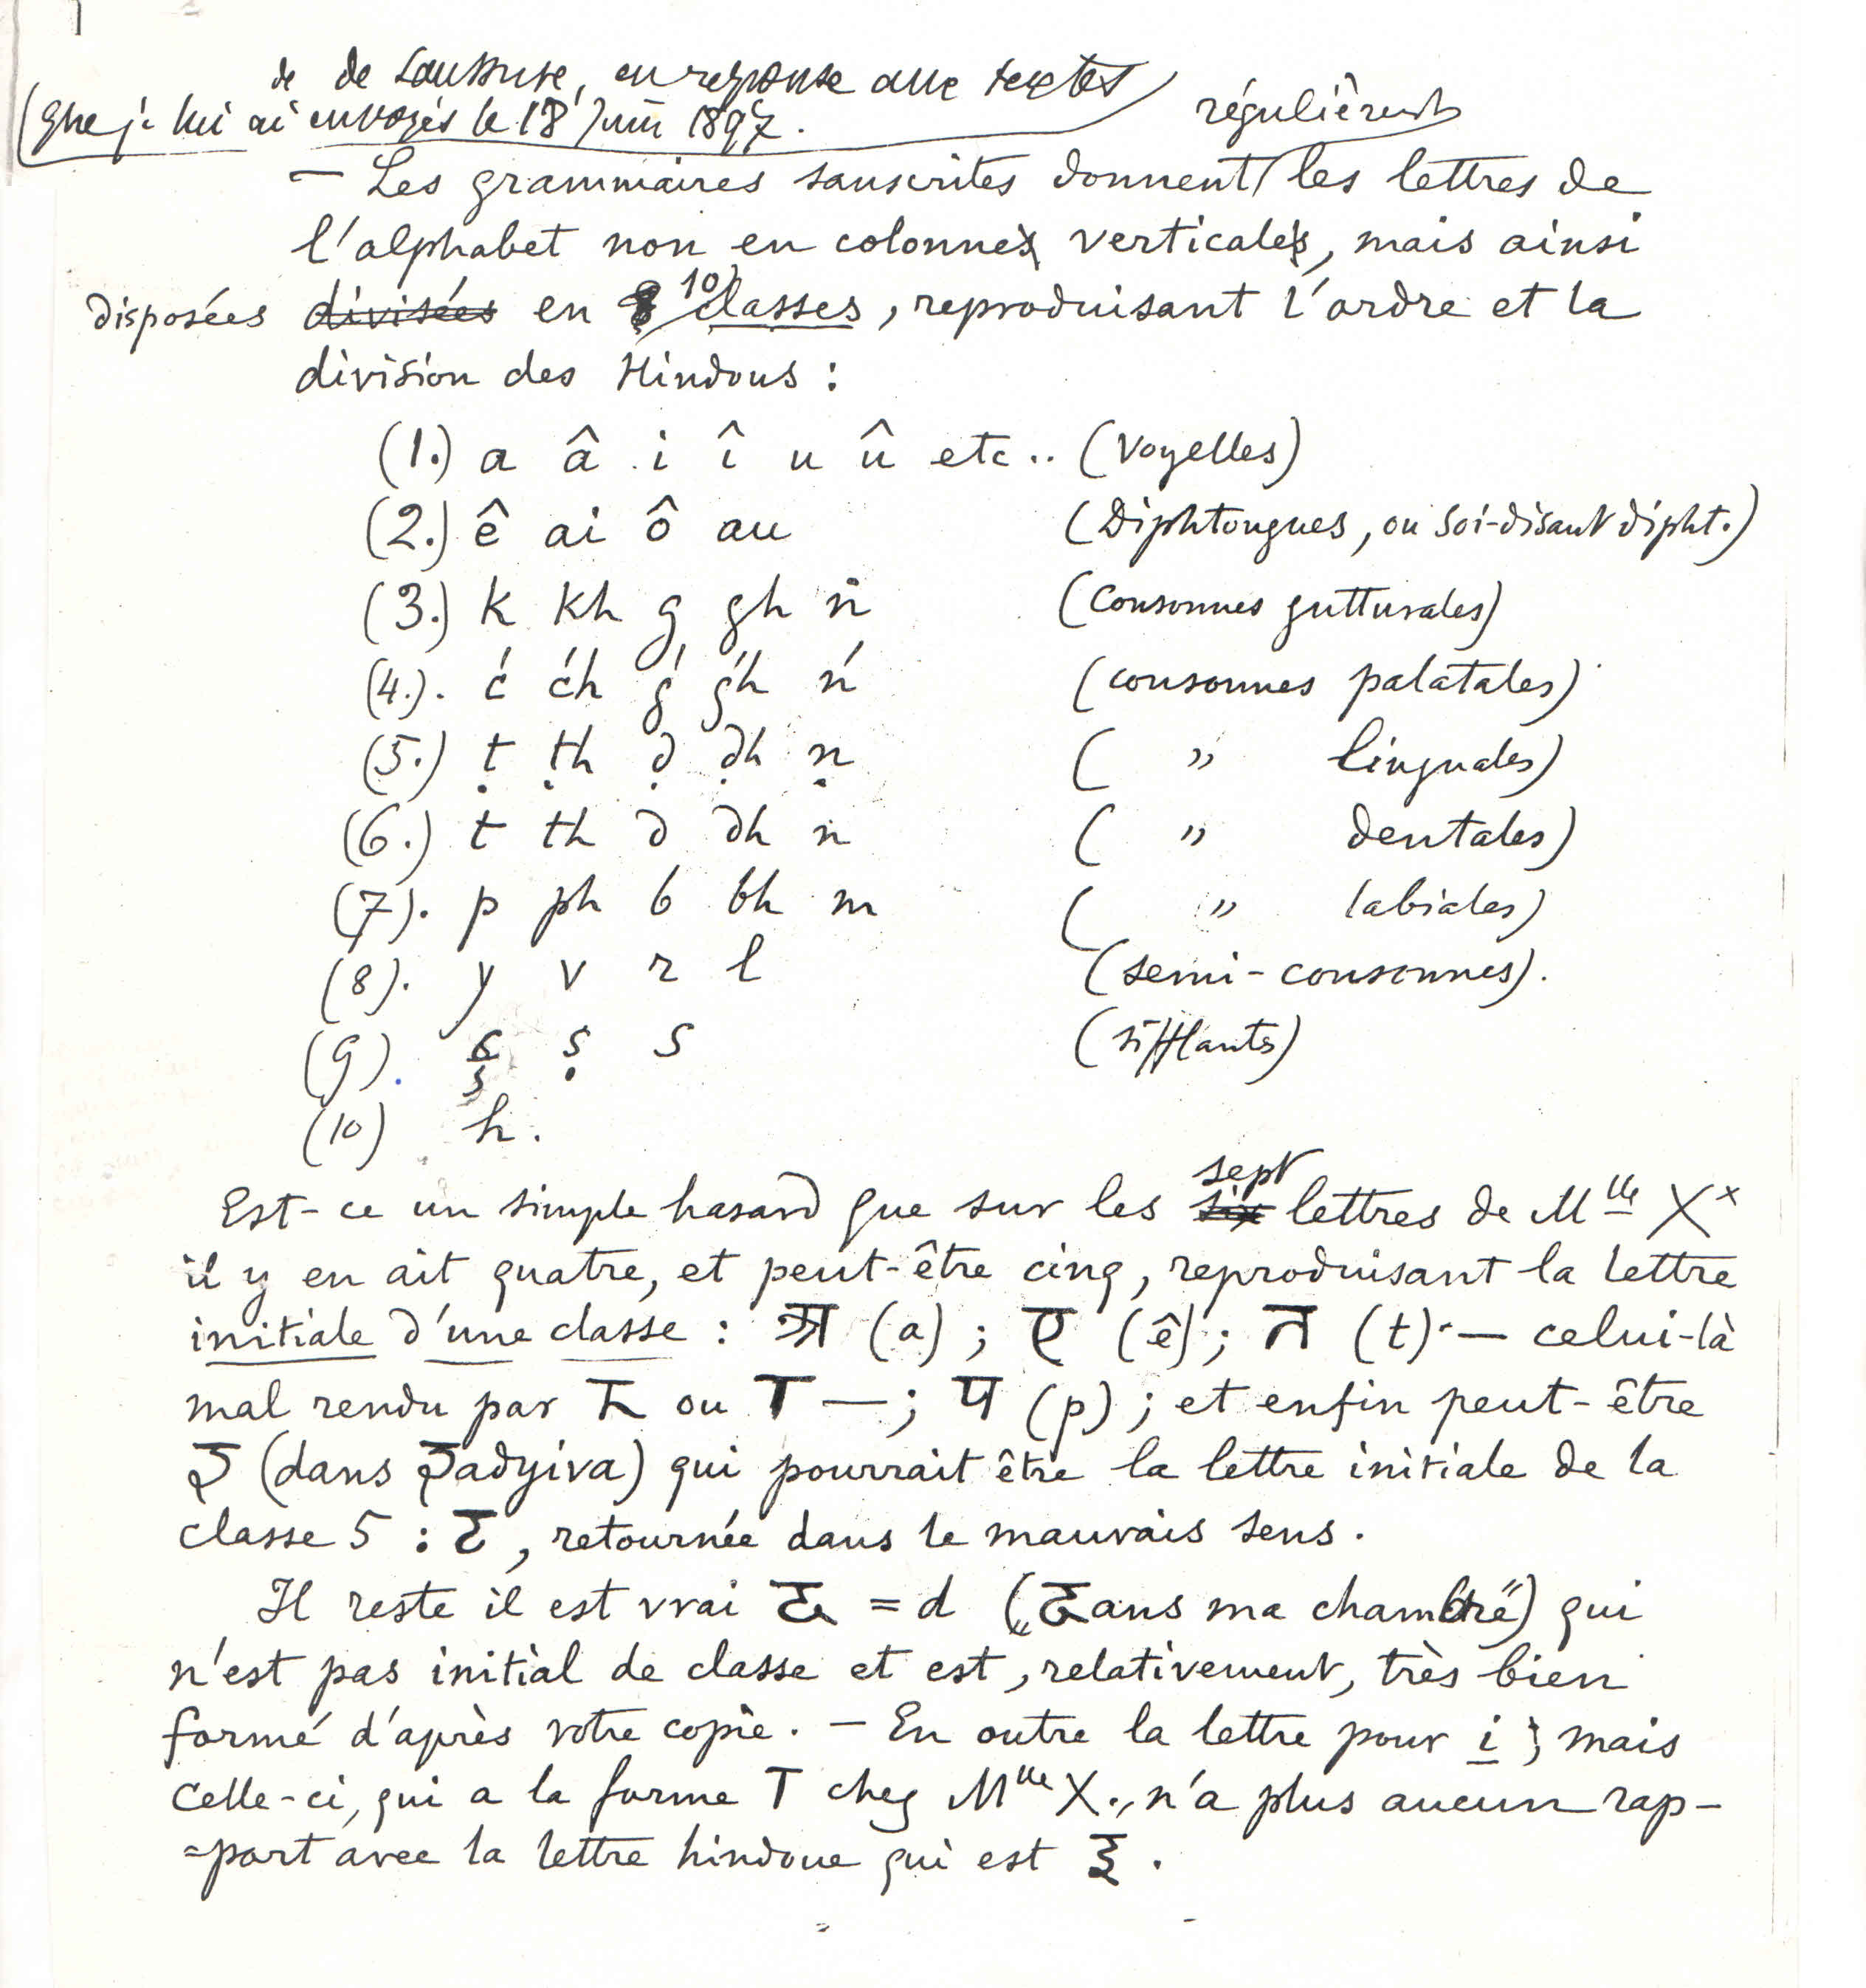 de de Saussure, en reponse aux textes
(que je lui ai envoyés le 18 Juin 1897.
régulièremt
— Les grammaires sanscrites donnent les lettres de
l'alphabet non en colonnes verticales, mais ainsi
disposées divisées en 8 10 classes, reproduisant l'ordre et la
division des Hindous :
(1.) a â i î u û etc .. (Voyelles)
(2.) ê ai ô au (Diphtongues, ou soi-disant dipht.)
(3.) k kh g gh ṅ (consonnes gutturales)
(4.). ć ćh ǵ ǵh ń (consonnes palatales)
(5.) ṭ ṭh ḍ ḍh ṇ ( " linguales)
(6.) t th d dh n ( " dentales)
(7). p ph b bh m ( " labiales)
(8). y v r l (semi-consonnes).
(9). ç ṣ s (sifflants)
(10) h.
Est-ce un simple hasard que sur les six sept lettres de Mlle X×
il y en ait quatre, et peut-être cinq, reproduisant la lettre
initiale d'une classe : अ (a) ; ए (ê) ; त (t) — celui-là
mal rendu par ou T — ; प (p) ; et enfin peut-être
(dans adyiva) qui pourrait être la lettre initiale de la
classe 5 : ट, retournée dans le mauvais sens.
Il reste il est vrai = d („ ans ma chambre") qui
n'est pas initial de classe et est, relativement, très bien
formé d'après votre copie. — En outre la lettre pour i ; mais
celle-ci, qui a la forme T chez Mlle X., n'a plus aucun rap-
=port avec la lettre hindoue qui est इ .